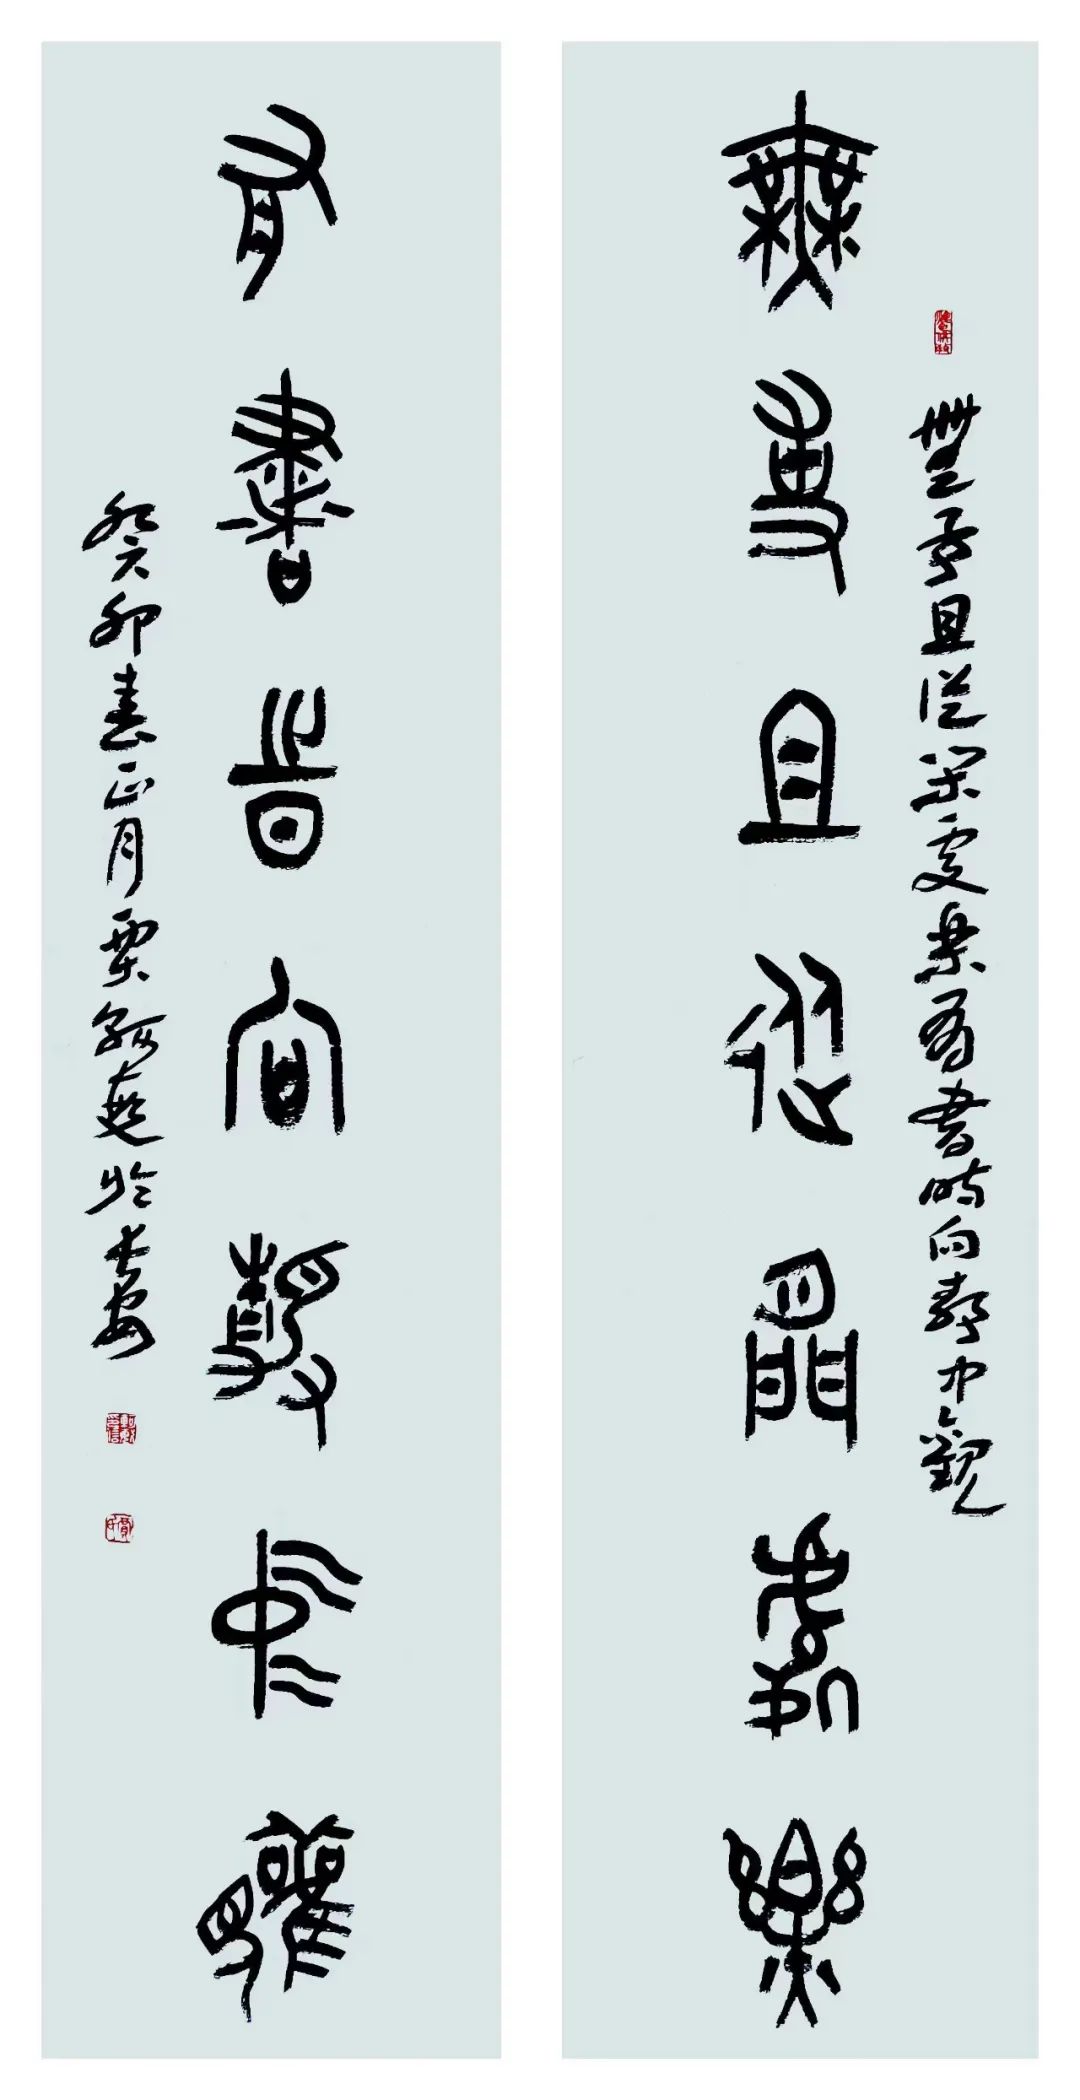 無事且從閒處樂
無事且從閒處樂有書時向靜中觀
有書時向靜中觀
癸卯春正月於長安